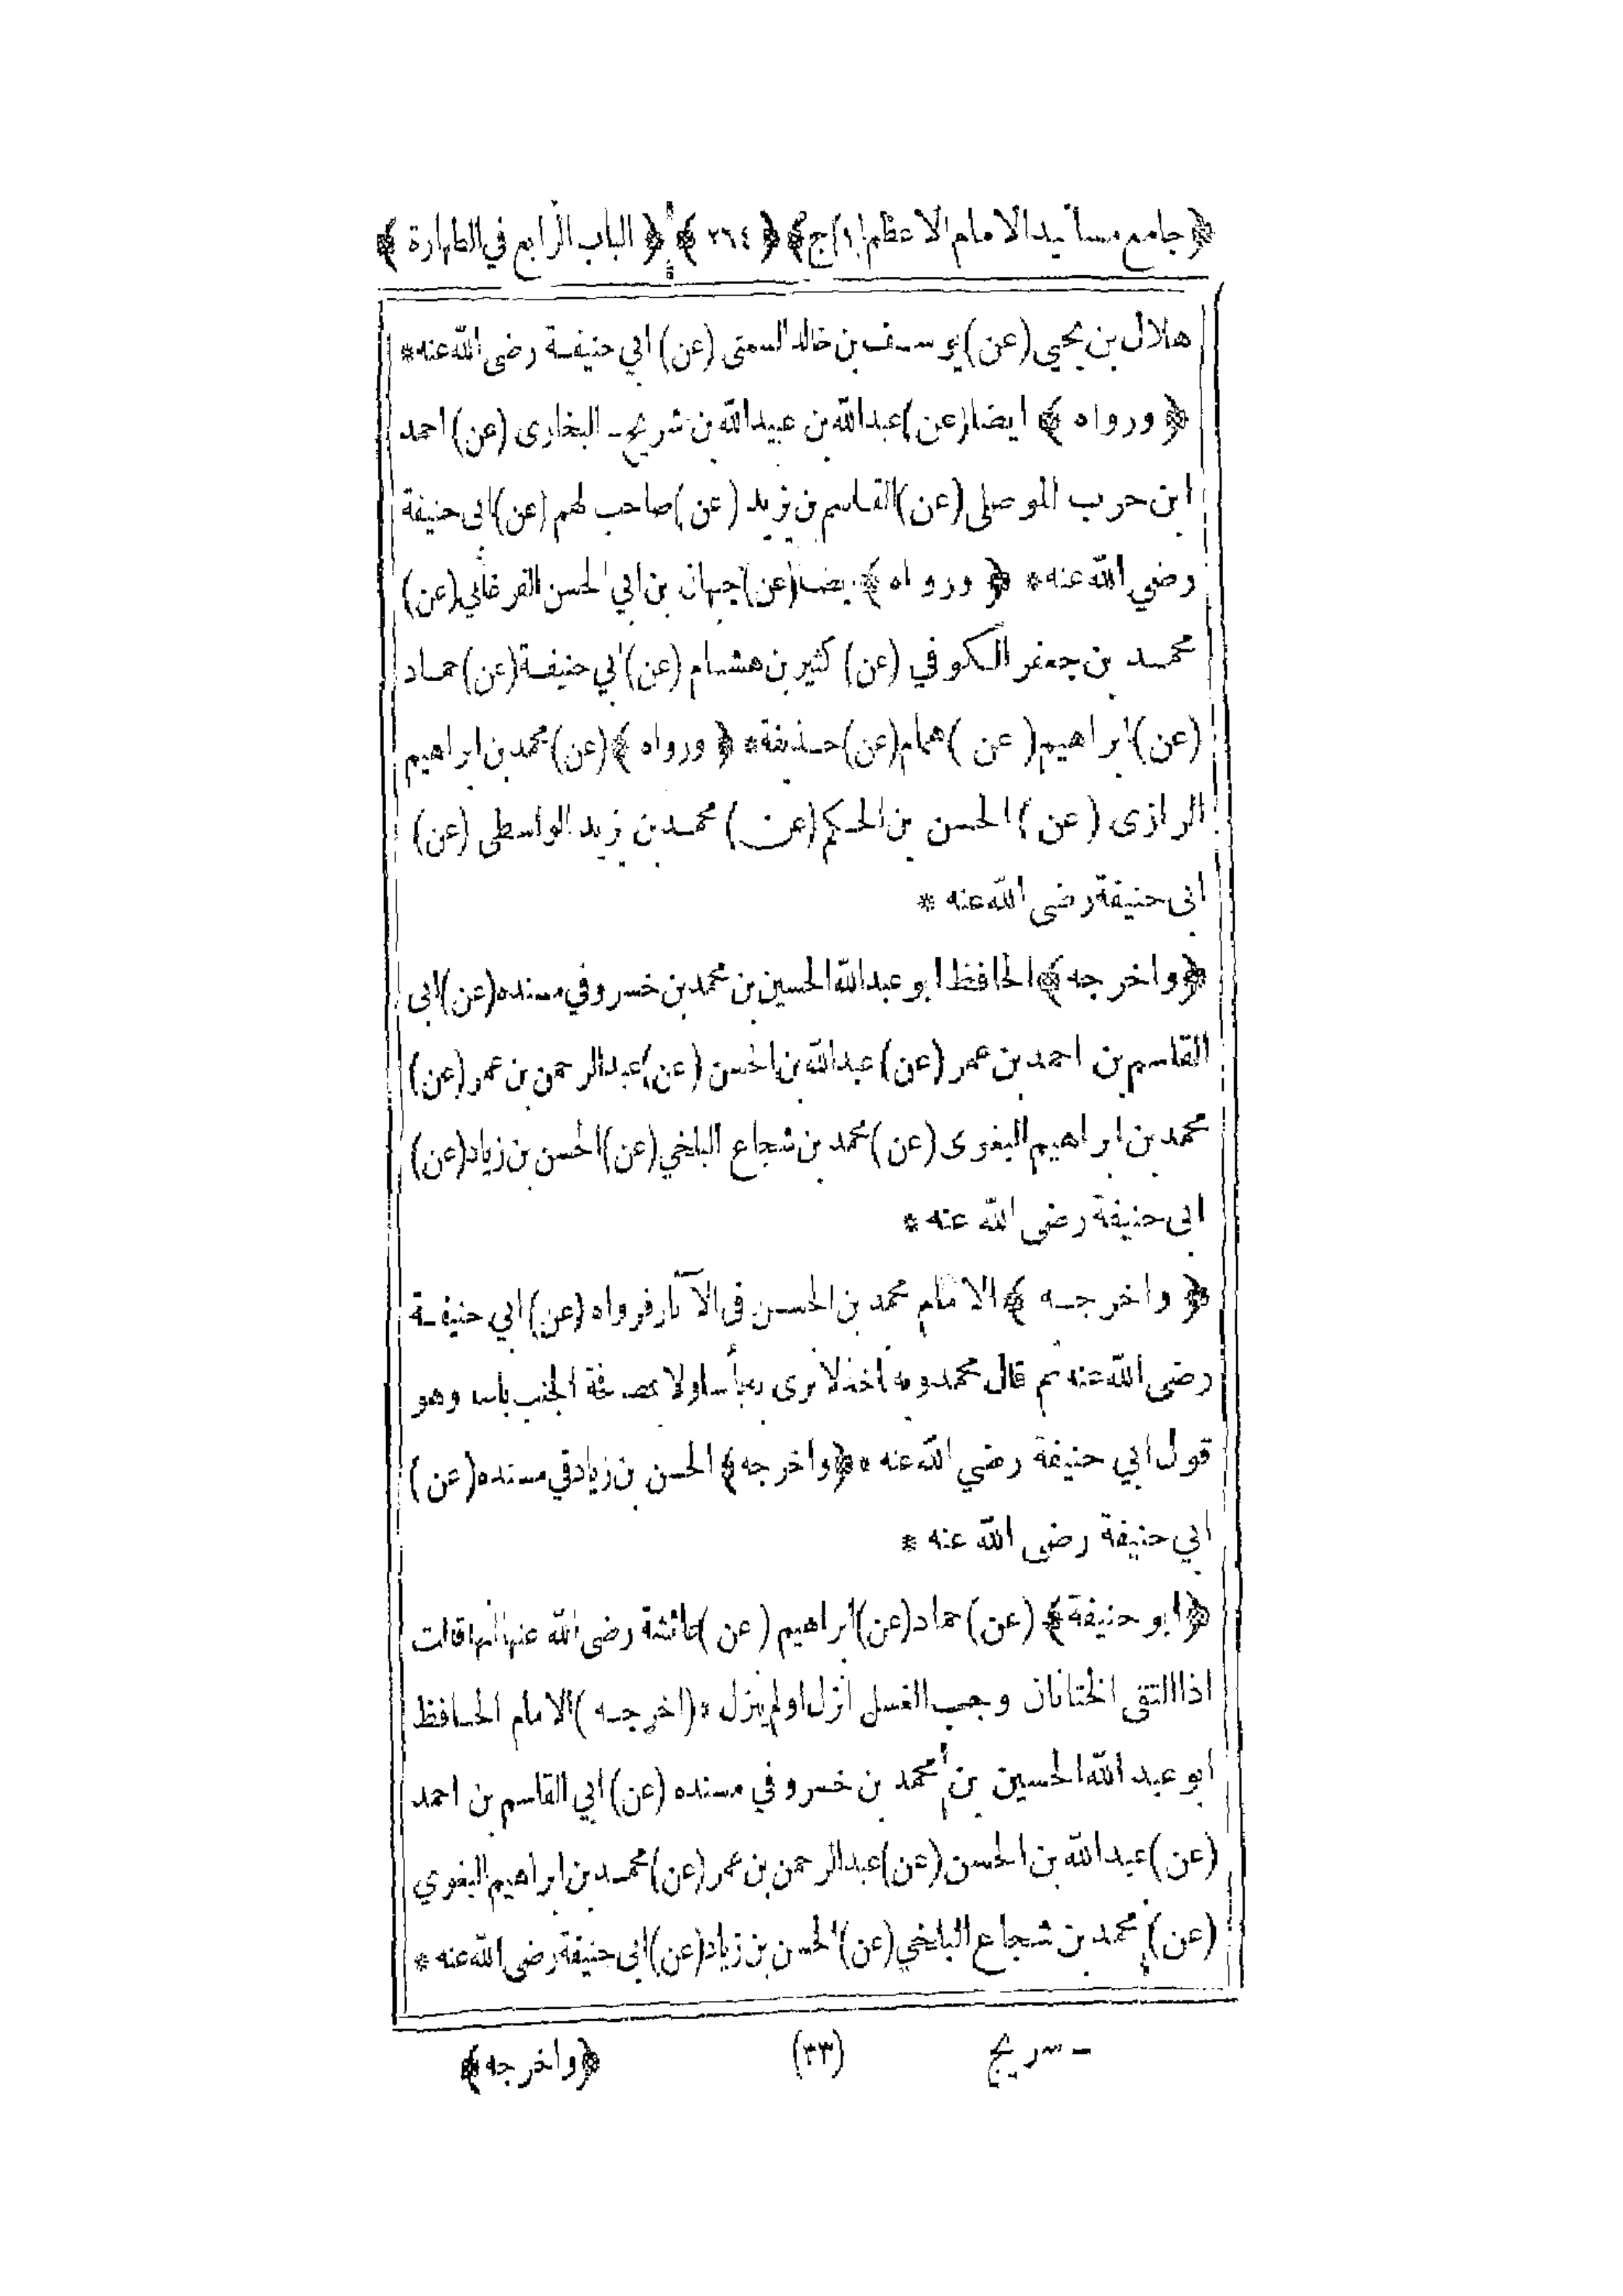 ﴿ جامع مسانيد الامام الاعظم ج١ ﴾ ﴿ ٢٦٤ ﴾ ﴿ الباب الرابع في الطهارة ﴾
هلال بن يحيي (عن) يوسف بن خالد السمتى (عن) ابي حنيفة رضى الله عنه *
﴿ ورواه ﴾ ايضا (عن) عبدالله بن عبيدالله بن شريح ـ البخارى (عن) احمد
ابن حرب الموصلى (عن) القاسم بن يزيد (عن) صاحب لهم (عن) ابى حنيفة
رضي الله عنه * ﴿ ورواه ﴾ ايضا (عن) جبهان بن ابي الحسن الفرغاني (عن)
محمد بن جعفر الكوفي (عن) كثير بن هشام (عن) ابي حنيفة (عن) حماد
(عن) ابراهيم (عن) همام (عن) حذيفة * ﴿ ورواه ﴾ (عن) محمد بن ابراهيم
الرازى (عن) الحسن بن الحكم (عن) محمد بن يزيد الواسطى (عن)
ابى حنيفة رضى الله عنه *
﴿ واخرجه ﴾ الحافظ ابو عبدالله الحسين بن محمد بن خسرو في مسنده (عن) ابى
القاسم بن احمد بن عمر (عن) عبدالله بن الحسن (عن) عبدالرحمن بن عمر (عن)
محمد بن ابراهيم البغوى (عن) محمد بن شجاع البلخي (عن) الحسن بن زياد (عن)
ابى حنيفة رضى الله عنه *
﴿ واخرجه ﴾ الامام محمد بن الحسن فى الآثار فرواه (عن) ابي حنيفة
رضى الله عنه ثم قال محمد وبه نأخذ لا نرى به بأسا ولا بمصافحة الجنب باسا وهو
قول ابي حنيفة رضي الله عنه * ﴿ واخرجه ﴾ الحسن بن زياد في مسنده (عن)
ابي حنيفة رضى الله عنه *
﴿ ابو حنيفة ﴾ (عن) حماد (عن) ابراهيم (عن) عائشة رضى الله عنها انها قالت
اذا التقى الختانان وجب الغسل انزل او لم ينزل * (اخرجه) الامام الحافظ
ابو عبد الله الحسين بن محمد بن خسرو في مسنده (عن) ابي القاسم بن احمد
(عن) عبدالله بن الحسن (عن) عبدالرحمن بن عمر (عن) محمد بن ابراهيم البغوي
(عن) محمد بن شجاع البلخي (عن) الحسن بن زياد (عن) ابى حنيفة رضى الله عنه *
ـ سريج (٣٣) ﴿ واخرجه ﴾